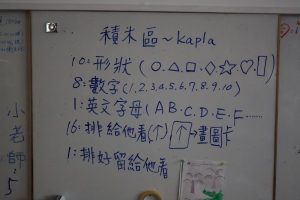 積木區~kapla
10:形狀(○.△.□.◇.☆.♡.▯)
8:數字(1,2,3,4,5,6,7,8,9,10)
1:英文字母(A B.C.D.E.F……
16:排給他看(个)个→畫圖卡
1:排好留給他看
小老師:5